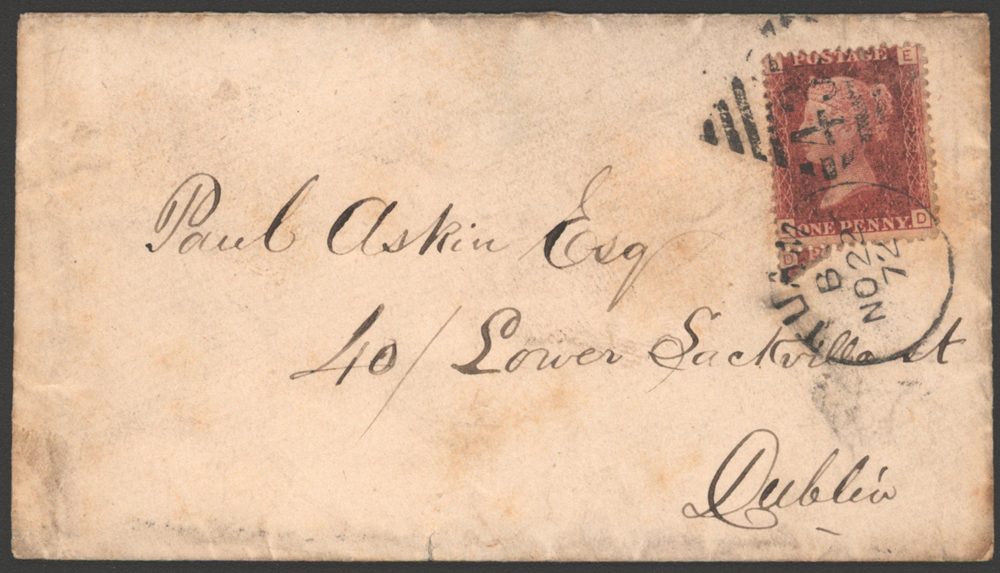 POSTAGE
E
ONE PENNY
D
43
TUAM
B
NO 22
72
Paul Askin Esq
40/ Lower Sackville st
Dublin